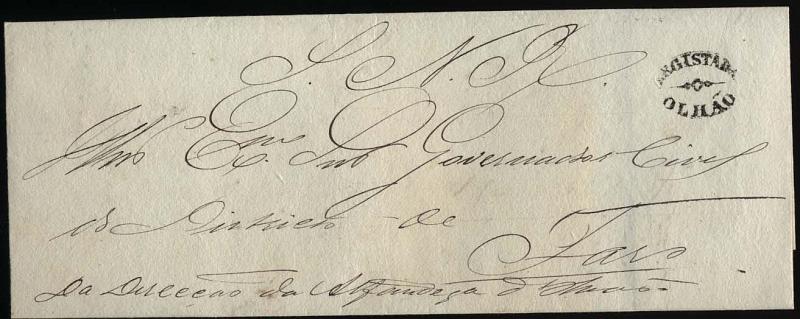 S. N. R.
REGISTADA
OLHÃO
Illmo Exmo Snr Governador Civil
do Districto de
Faro
Da Direcção da Alfandega d'Olhão